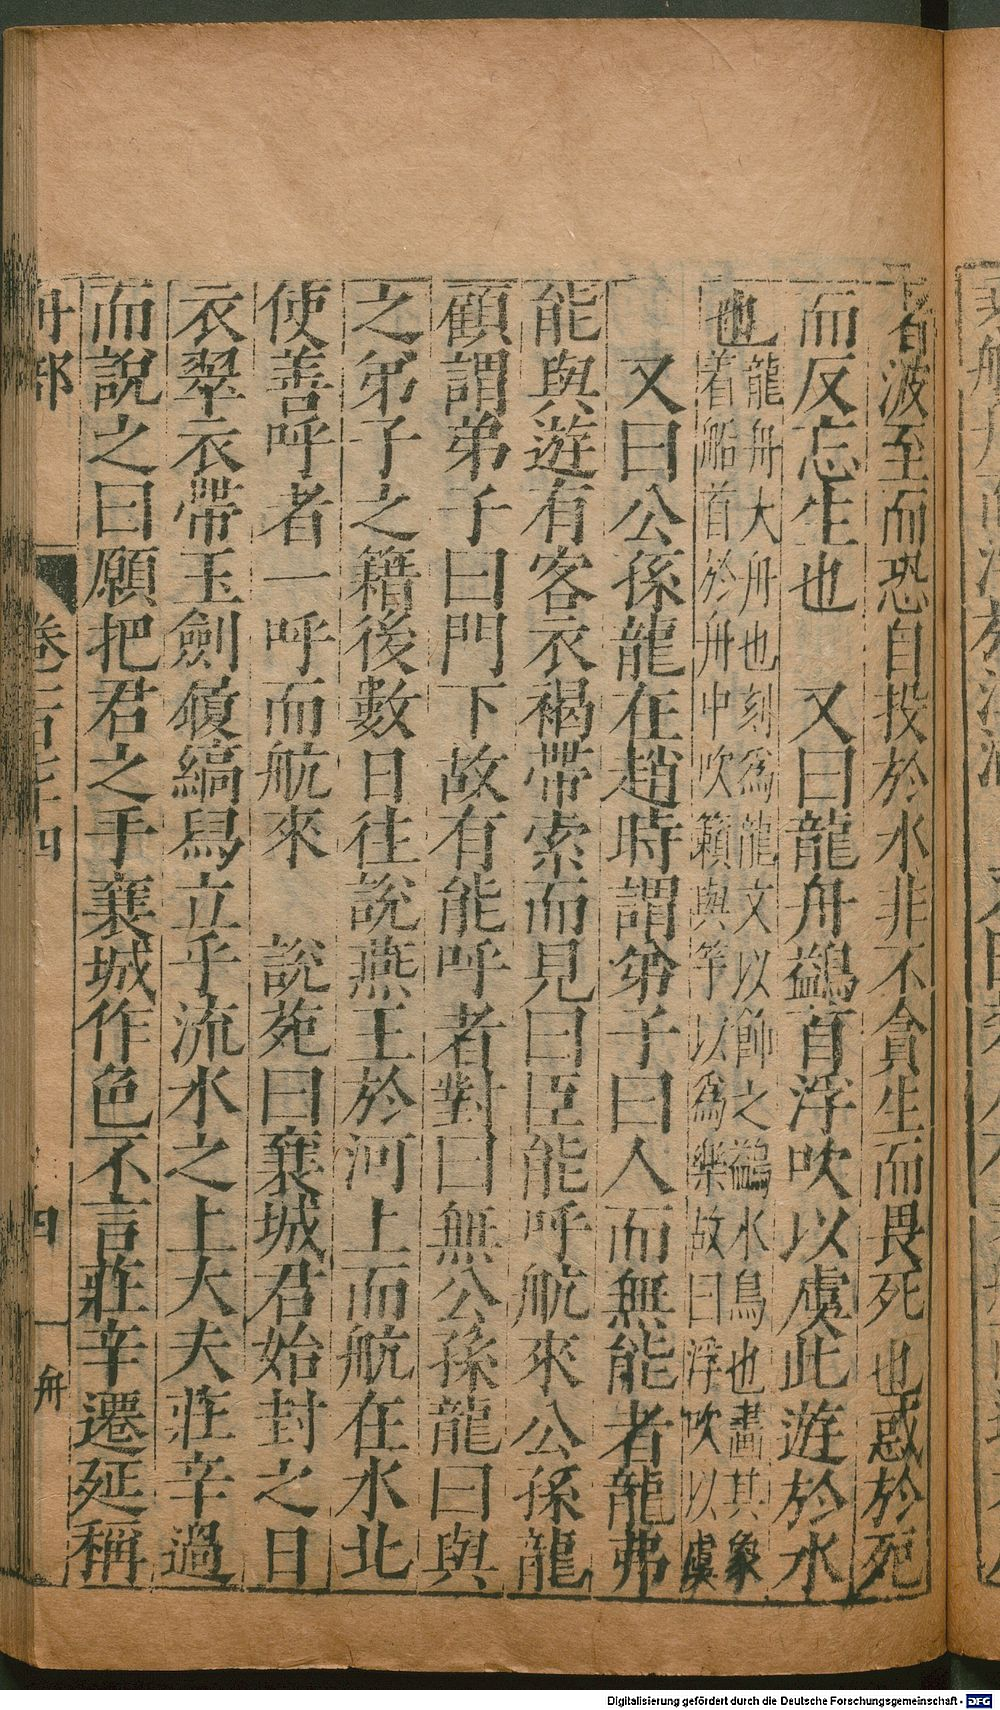 波至而恐自投於水非不貪生而畏死也惑於死
而反忘生也　又曰龍舟鷁首浮吹以虞此遊於水
也龍舟大舟也刻爲龍文以飾之鷁水鳥也畫其象
着船首於舟中吹籟與竽以爲樂故曰浮吹以虞
又曰公孫龍在趙時謂弟子曰人而無能者龍弗
能與遊有客衣褐帶索而見曰臣能呼航來公孫龍
顧謂弟子曰門下故有能呼者對曰無公孫龍曰與
之弟子之籍後數日往說燕王於河上而航在水北
使善呼者一呼而航來　說苑曰襄城君始封之日
衣翠衣帶玉劍履縞舄立乎流水之上大夫莊辛過
而說之曰願把君之手襄城作色不言莊辛遷延稱
舟部　卷　四　四　舟
Digitalisierung gefördert durch die Deutsche Forschungsgemeinschaft - DFG